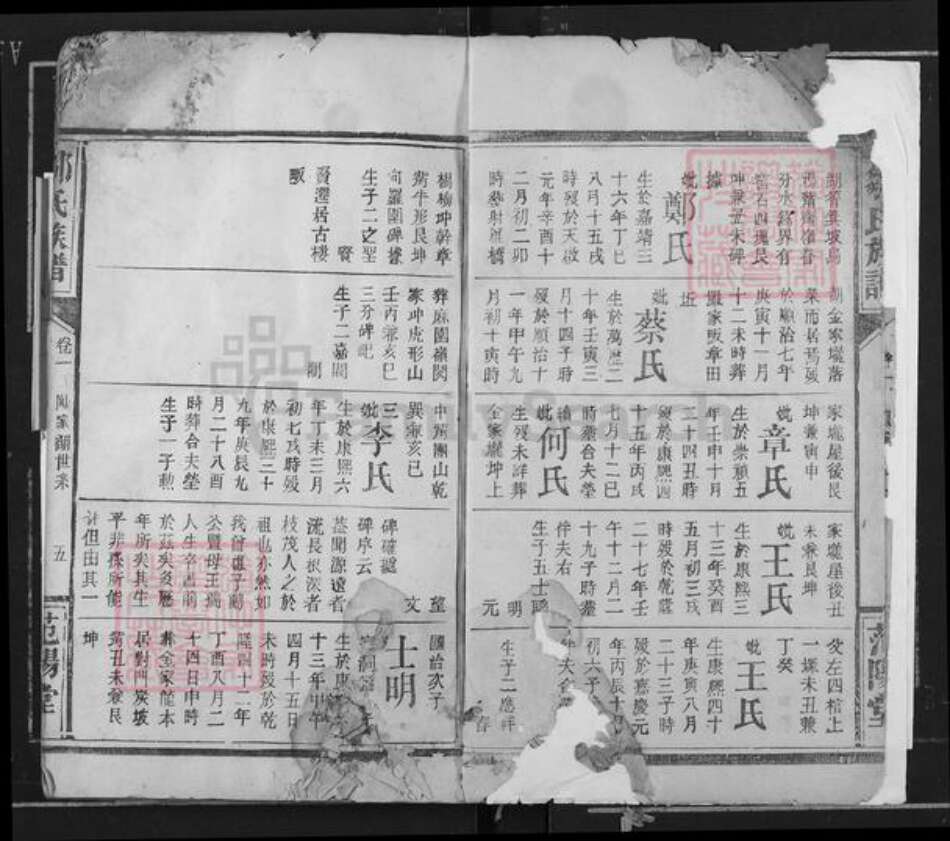 分水發界有
坤兼丑未碑
據
妣鄭氏
生於嘉靖三
十六年丁巳
八月十五戌
時歿於天啟
元年辛酉十
二月初二卯
湖金家壠落
業而居焉歿
於順治七年
庚寅十一月
十二未時葬
家畈章田
坵
妣蔡氏
生於萬歷二
十年壬寅三
月十四子時
歿於順治十
一年甲午九
月初十寅時
家壠屋後艮
坤兼寅申
妣章氏
生於崇禎五
年壬申十月
二十四丑時
歿於康熙四
十五年丙戌
七月十二巳
時葬合夫塋
繼
妣何氏
生歿未詳葬
金家壠坤上
家壠屋後丑
未兼艮坤
妣王氏
生於康熙三
十三年癸酉
五月初三戌
時歿於乾隆
二十七年壬
午十二月二
十九子時葬
伴夫右
生子五士
明
元
癸左四棺上
一塚未丑兼
丁癸
妣王氏
生康熙四十
年庚寅八月
二十三子時
歿於嘉慶元
年丙辰十
初六子
伴夫合
生子二應祥
春
楊柳坤幹章
蒴牛形艮坤
向羅圍碑據
生子二之聖
賢
賢遷居古樓
畈
葬麻園嶺関
家冲虎形山
壬丙兼亥巳
三分碑記
生子二嘉
中月團山乾
巽兼亥巳
三
妣李氏
生於康熙六
年丁未三月
初七戌時歿
於康熙三十
九年庚辰九
月二十八酉
時葬合夫塋
生子一子勲
望
文
碑確據
碑序云
蓋聞源遠者
流長根深者
枝茂人之於
祖也亦然如
我曾
公暨母王孺
人生辛吉前
於茲矣
年所矣其生
平非孫所能
計但由其一
國治次子
士明
生於康
十三年甲午
四月十五日
未時歿於乾
隆四十二年
丁酉八月二
十四日申時
葬金家壠本
居對門炭坡
嘴丑未兼艮
坤
氏族譜
卷一
湖世系
五
范陽堂